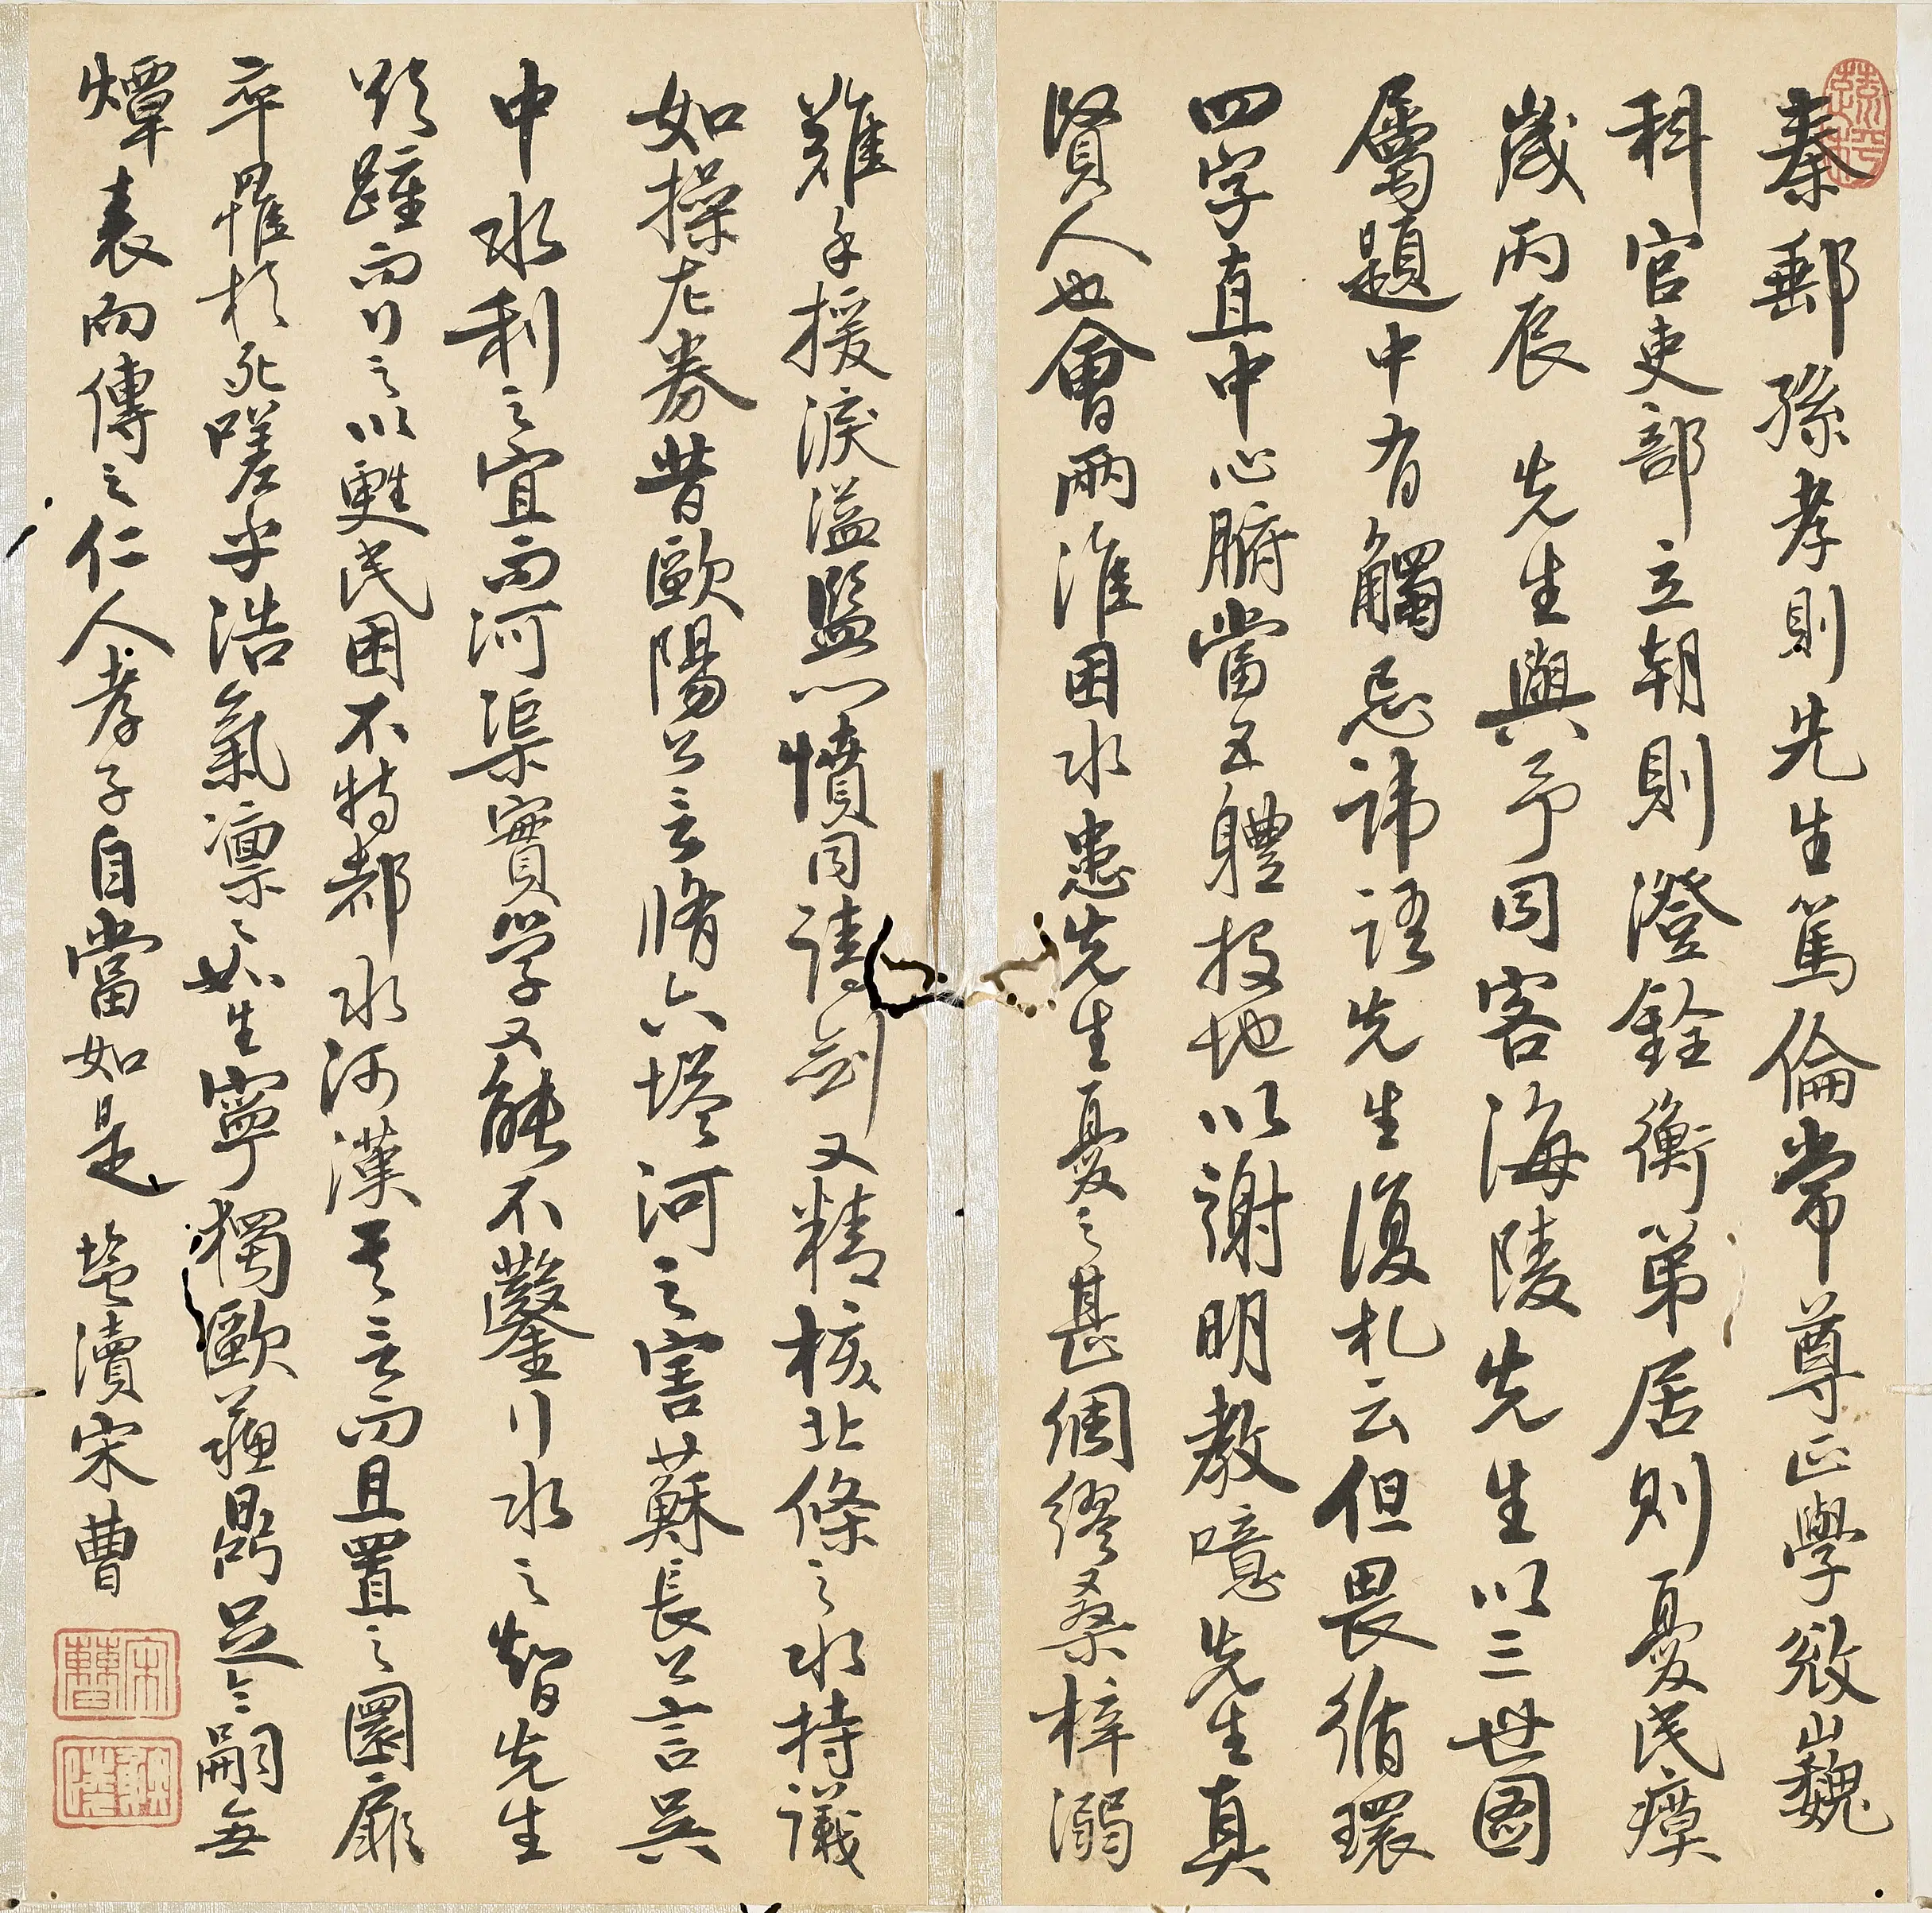 秦郵孫孝則先生篤倫常尊正學發巍
科官吏部立朝則澄銓衡第居則憂民瘼
歲丙辰先生與予同客海陵先生以三世圖
屬題中有觸忌諱語先生復札云但畏循環
四字直中心腑當五體投地以謝明教噫先生真
賢人也會兩淮困水患先生憂之甚綢繆桑梓溺
難手援淚溢監心憤同請劍又精核北條之水持議
如操左券昔歐陽公言脩六塔河之害蘇長公言吳
中水利之宜而河渠實學又能不鑿川水之智先生
欲踵而行之以甦民困不特都水河漢其言而且置之圜扉
卒罹於死嗟乎浩氣凜凜如生寧獨歐蘇鼎足令嗣無
燂表而傳之仁人孝子自當如是 鹽瀆宋曹
宋曹